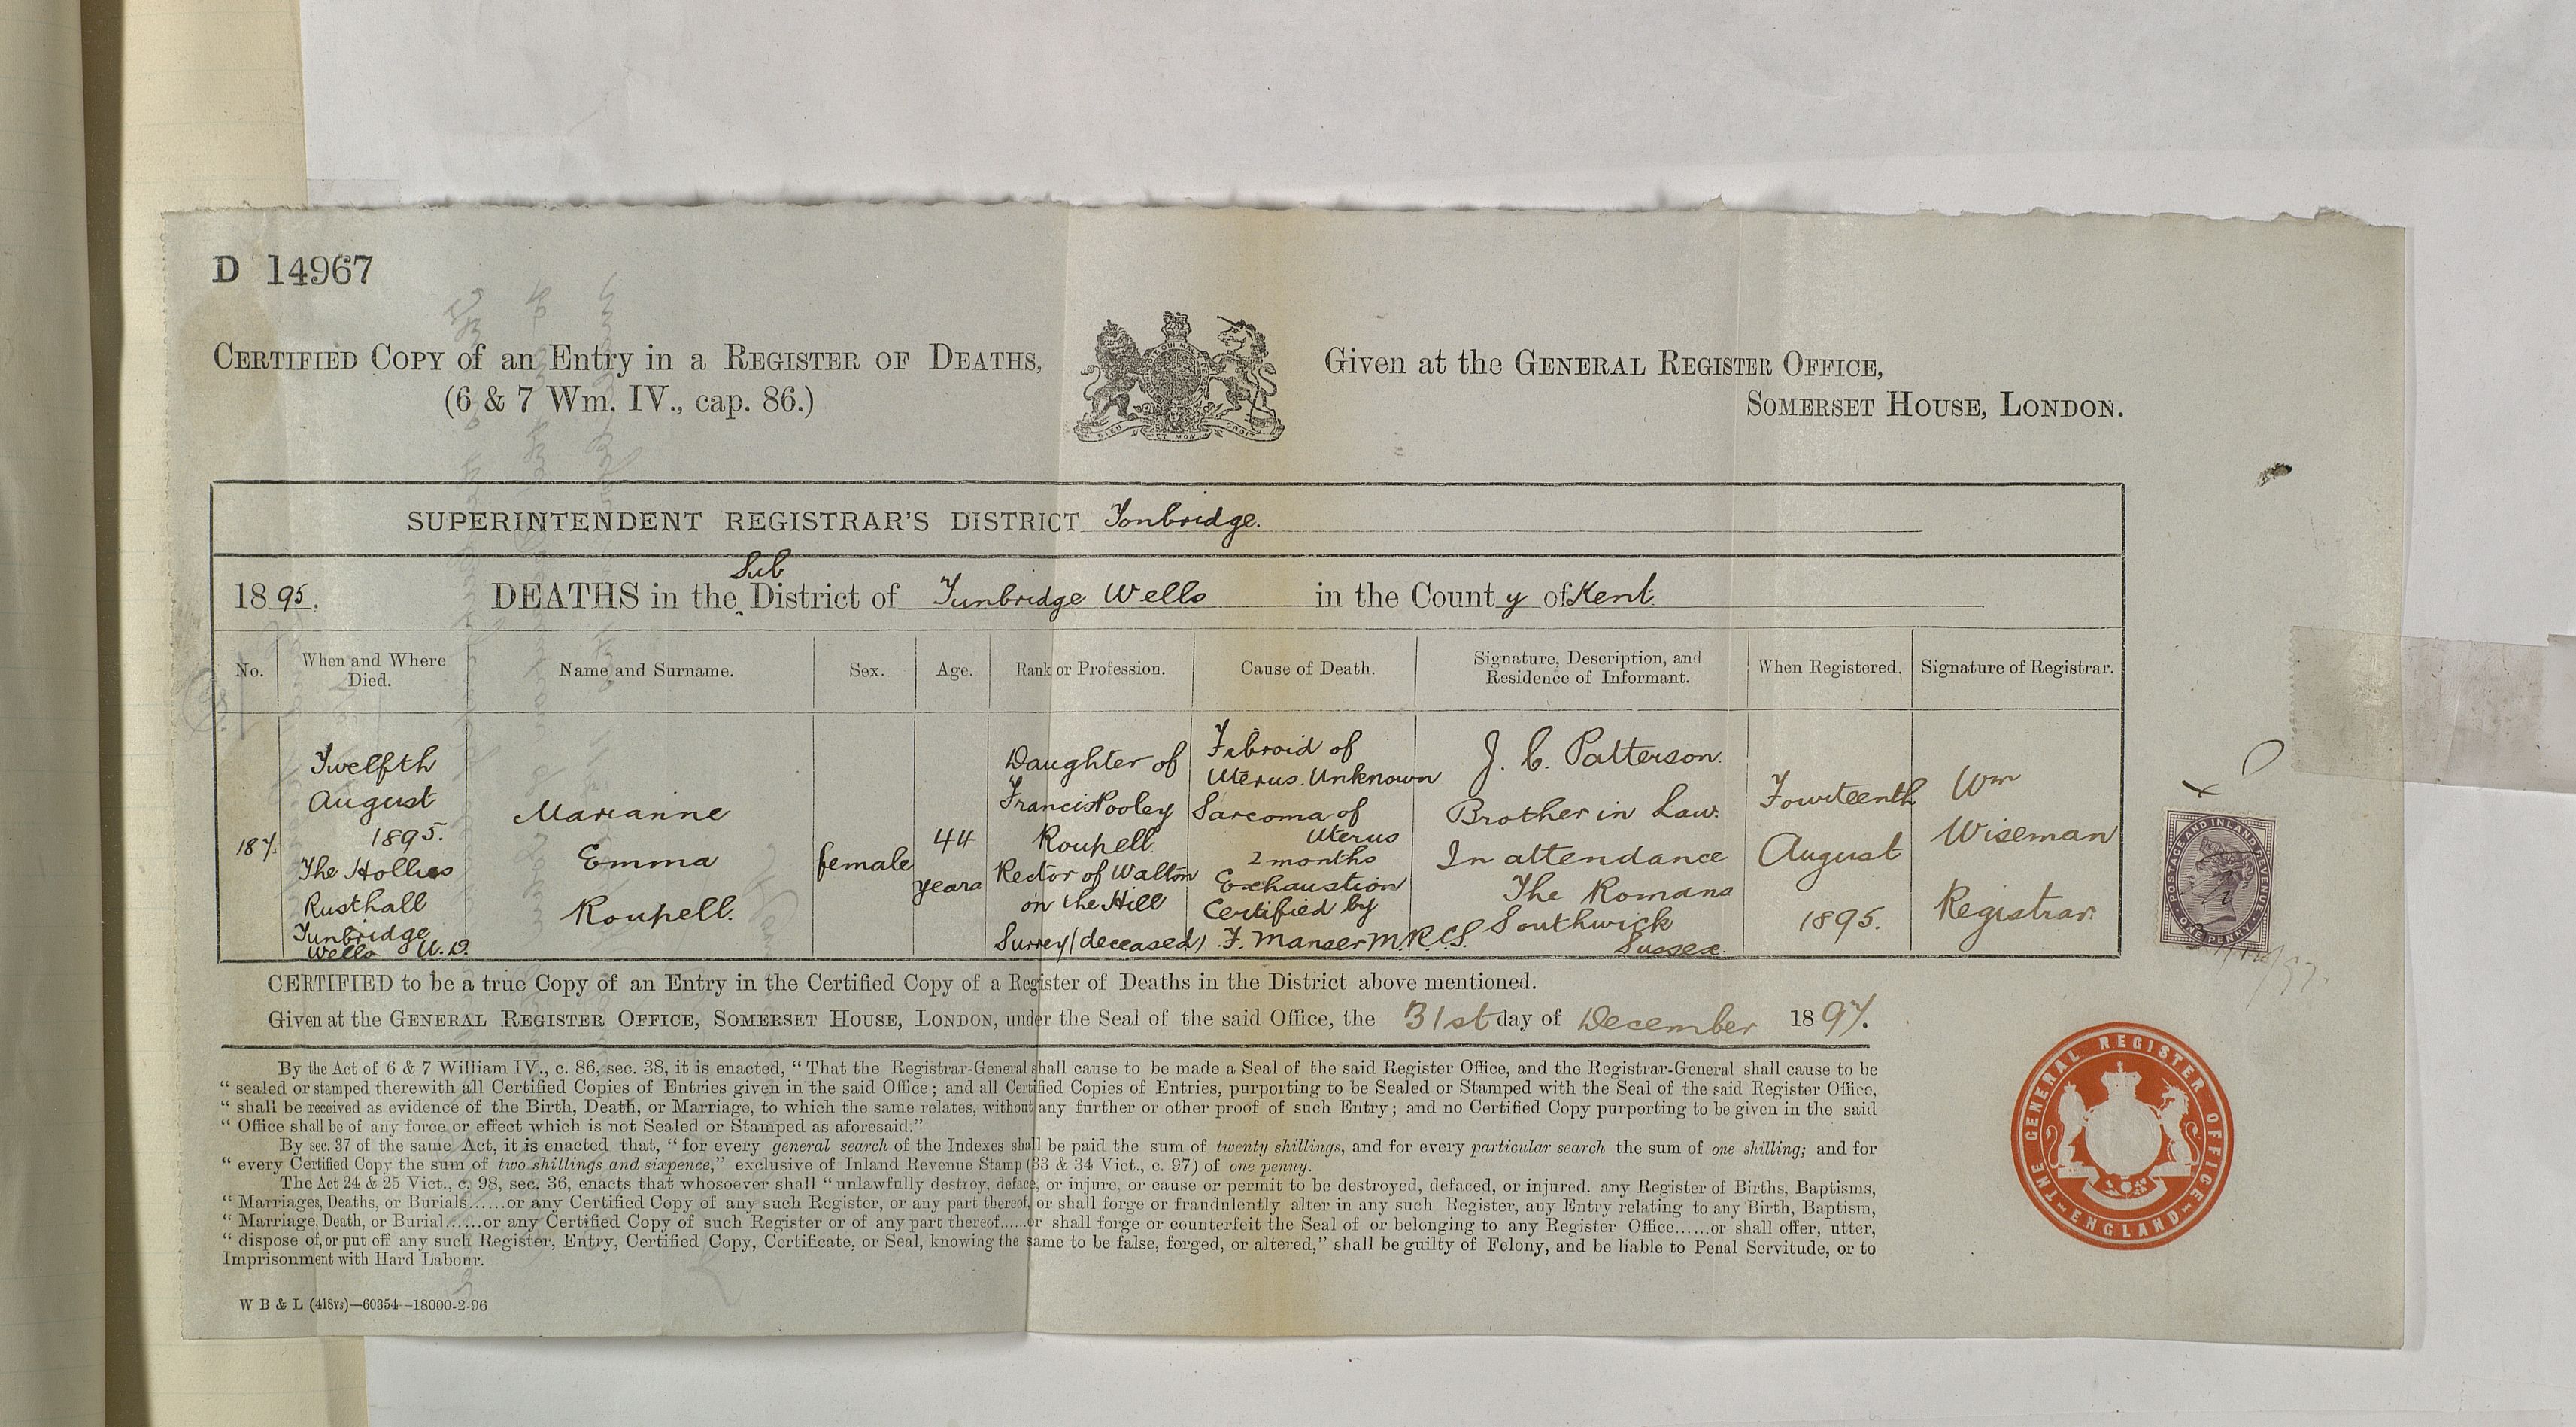 D 14967
CERTIFIED COPY of an Entry in a REGISTER OF DEATHS,
(6 & 7 Wm. IV., cap. 86.)
Given at the GENERAL REGISTER OFFICE,
SOMERSET HOUSE, LONDON.
SUPERINTENDENT REGISTRAR'S DISTRICT Tonbridge.
Sub
1895. DEATHS in the District of Tunbridge Wells in the County of Kent.
No.
When and Where
Died.
Name and Surname.
Sex.
Age.
Rank or Profession.
Cause of Death.
Signature, Description, and
Residence of Informant.
When Registered.
Signature of Registrar.
187.
Twelfth
August
1895.
The Hollies
Rusthall
Tunbridge
Wells U.D.
Marianne
Emma
Roupell.
female
44
years
Daughter of
Francis Pooley
Roupell.
Rector of Walton
on the Hill
Surrey (deceased)
Fibroid of
Uterus. Unknown
Sarcoma of
Uterus
2 months
Exhaustion
Certified by
F. Manser M.R.C.S.
J. C. Patterson.
Brother in Law.
In attendance
The Romans
Southwick
Sussex.
Fourteenth
August
1895.
Wm
Wiseman
Registrar.
POSTAGE AND INLAND REVENUE
ONE PENNY
CERTIFIED to be a true Copy of an Entry in the Certified Copy of a Register of Deaths in the District above mentioned.
Given at the GENERAL REGISTER OFFICE, SOMERSET HOUSE, LONDON, under the Seal of the said Office, the 31st day of December 1897.
By the Act of 6 & 7 William IV., c. 86, sec. 38, it is enacted, "That the Registrar-General shall cause to be made a Seal of the said Register Office, and the Registrar-General shall cause to be
" sealed or stamped therewith all Certified Copies of Entries given in the said Office; and all Certified Copies of Entries, purporting to be Sealed or Stamped with the Seal of the said Register Office,
" shall be received as evidence of the Birth, Death, or Marriage, to which the same relates, without any further or other proof of such Entry; and no Certified Copy purporting to be given in the said
" Office shall be of any force or effect which is not Sealed or Stamped as aforesaid."
By sec. 37 of the same Act, it is enacted that, "for every general search of the Indexes shall be paid the sum of twenty shillings, and for every particular search the sum of one shilling; and for
" every Certified Copy the sum of two shillings and sixpence," exclusive of Inland Revenue Stamp (33 & 34 Vict., c. 97) of one penny.
The Act 24 & 25 Vict., c. 98, sec. 36, enacts that whosoever shall "unlawfully destroy, deface, or injure, or cause or permit to be destroyed, defaced, or injured, any Register of Births, Baptisms,
" Marriages, Deaths, or Burials......or any Certified Copy of any such Register, or any part thereof, or shall forge or fraudulently alter in any such Register, any Entry relating to any Birth, Baptism,
" Marriage, Death, or Burial......or any Certified Copy of such Register or of any part thereof......or shall forge or counterfeit the Seal of or belonging to any Register Office......or shall offer, utter,
" dispose of, or put off any such Register, Entry, Certified Copy, Certificate, or Seal, knowing the same to be false, forged, or altered," shall be guilty of Felony, and be liable to Penal Servitude, or to
Imprisonment with Hard Labour.
W B & L (418rs)—60354—18000-2-96
THE GENERAL REGISTER OFFICE
ENGLAND